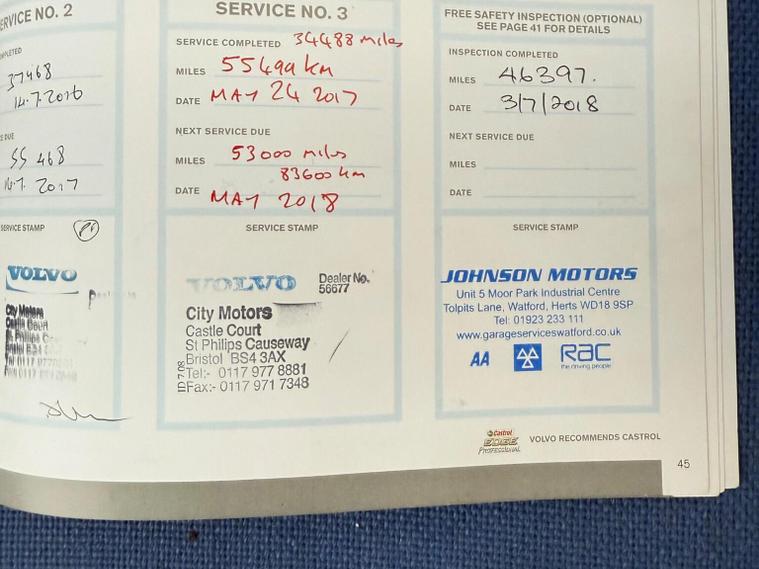 SERVICE NO. 2
37468
14.7.2016
DUE
55 468
14.7. 2017
SERVICE STAMP
VOLVO
City Motors
Castle Court
SERVICE NO. 3
SERVICE COMPLETED 34488 miles
MILES 55499 km
DATE MAY 24 2017
NEXT SERVICE DUE
MILES 53000 miles
83600 km
DATE MAY 2018
SERVICE STAMP
VOLVO Dealer No.
56677
City Motors
Castle Court
St Philips Causeway
Bristol BS4 3AX
Tel:- 0117 977 8881
Fax:- 0117 971 7348
ID 7.08
FREE SAFETY INSPECTION (OPTIONAL)
SEE PAGE 41 FOR DETAILS
INSPECTION COMPLETED
MILES 46397.
DATE 3/7/2018
NEXT SERVICE DUE
MILES
DATE
SERVICE STAMP
JOHNSON MOTORS
Unit 5 Moor Park Industrial Centre
Tolpits Lane, Watford, Herts WD18 9SP
Tel: 01923 233 111
www.garageserviceswatford.co.uk
AA RAC
the driving people
Castrol
EDGE
PROFESSIONAL
VOLVO RECOMMENDS CASTROL
45